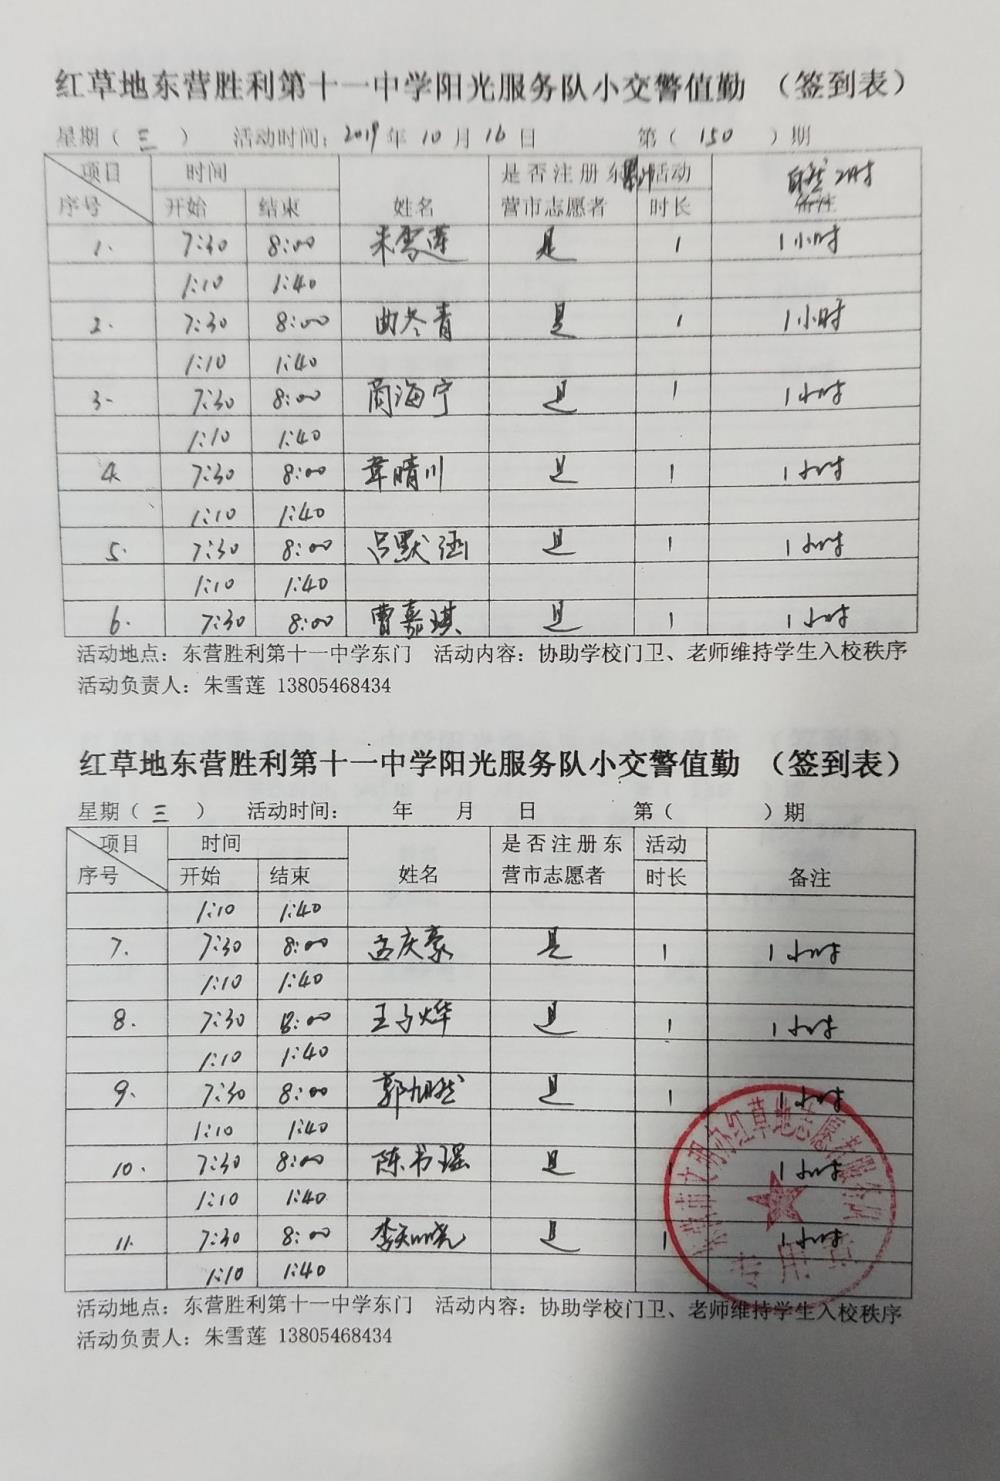 红草地东营胜利第十一中学阳光服务队小交警值勤 （签到表）
星期（ 三 ） 活动时间：2019 年 10 月 16 日 第（ 150 ）期
项目 时间 是否注册东 活动
序号 开始 结束 姓名 营市志愿者 时长 备注
1. 7:30 8:00 朱雪莲 是 1 1小时
1:10 1:40
2. 7:30 8:00 曲冬青 是 1 1小时
1:10 1:40
3. 7:30 8:00 商海宁 是 1 1小时
1:10 1:40
4. 7:30 8:00 韦晴川 是 1 1小时
1:10 1:40
5. 7:30 8:00 吕默涵 是 1 1小时
1:10 1:40
6. 7:30 8:00 曹嘉琪 是 1 1小时
活动地点：东营胜利第十一中学东门 活动内容：协助学校门卫、老师维持学生入校秩序
活动负责人：朱雪莲 13805468434
红草地东营胜利第十一中学阳光服务队小交警值勤 （签到表）
星期（ 三 ） 活动时间： 年 月 日 第（ ）期
项目 时间 是否注册东 活动
序号 开始 结束 姓名 营市志愿者 时长 备注
1:10 1:40
7. 7:30 8:00 孟庆豪 是 1 1小时
1:10 1:40
8. 7:30 8:00 王子烨 是 1 1小时
1:10 1:40
9. 7:30 8:00 郭旭然 是 1 1小时
1:10 1:40
10. 7:30 8:00 陈书瑶 是 1 1小时
1:10 1:40
11. 7:30 8:00 李知晓 是 1 1小时
1:10 1:40
专用章
活动地点：东营胜利第十一中学东门 活动内容：协助学校门卫、老师维持学生入校秩序
活动负责人：朱雪莲 13805468434